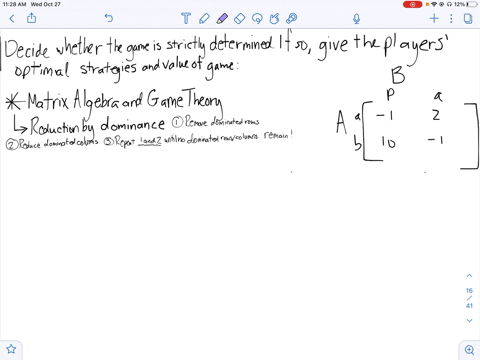 11:28 AM Wed Oct 27
12%
Decide whether the game is strictly determined If so, give the players'
optimal strategies and value of game:
B
* Matrix Algebra and Game Theory
p a
↳ Reduction by dominance ① Remove dominated rows
A a -1 2
② Reduce dominated colums ③ Repeat 1 and 2 until no dominated rows/colums remain!
b 10 -1
16
/
41